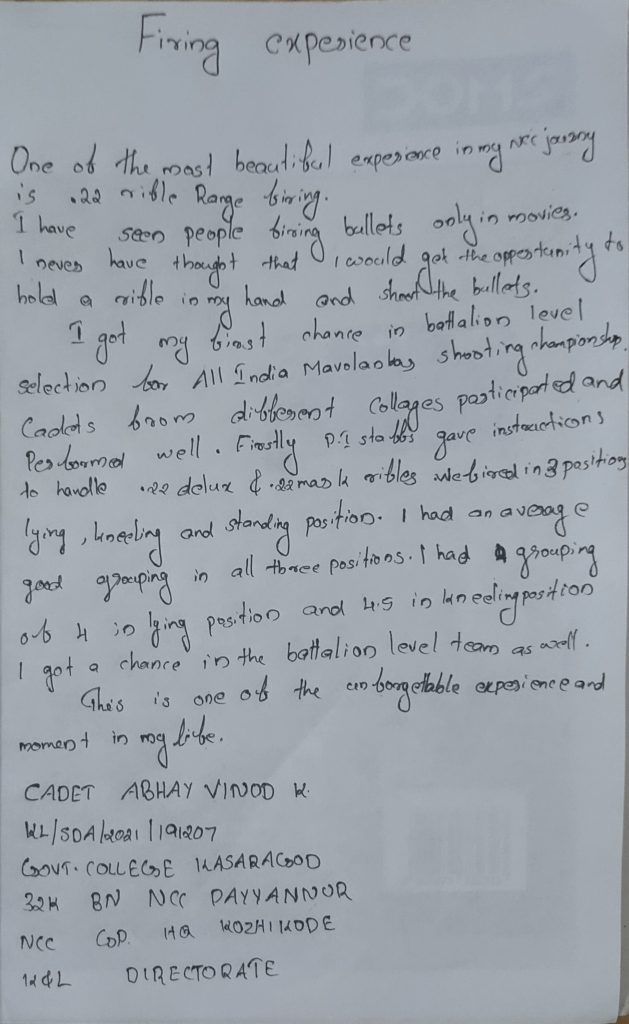 Firing experience
One of the most beautiful experience in my NCC journy
is .22 rifle Range firing.
I have seen people firing bullets only in movies.
I never have thought that I would get the oppertunity to
hold a rifle in my hand and shoot the bullets.
I got my first chance in battalion level
selection for All India Mavolankar shooting championship.
Cadets from different Collages participated and
Performed well. Firstly P.I staffs gave instructions
to handle .22 delux & .22 mark rifles we fired in 3 position
lying, kneeling and standing position. I had an average
good grouping in all three positions. I had a grouping
of 4 in lying position and 4.5 in kneeling position
I got a chance in the battalion level team as well.
This is one of the unforgettable experience and
moment in my life.
CADET ABHAY VINOD K.
KL/SDA/2021/191207
GOVT. COLLEGE KASARAGOD
32K BN NCC PAYYANNUR
NCC GP. HQ KOZHIKODE
K&L DIRECTORATE